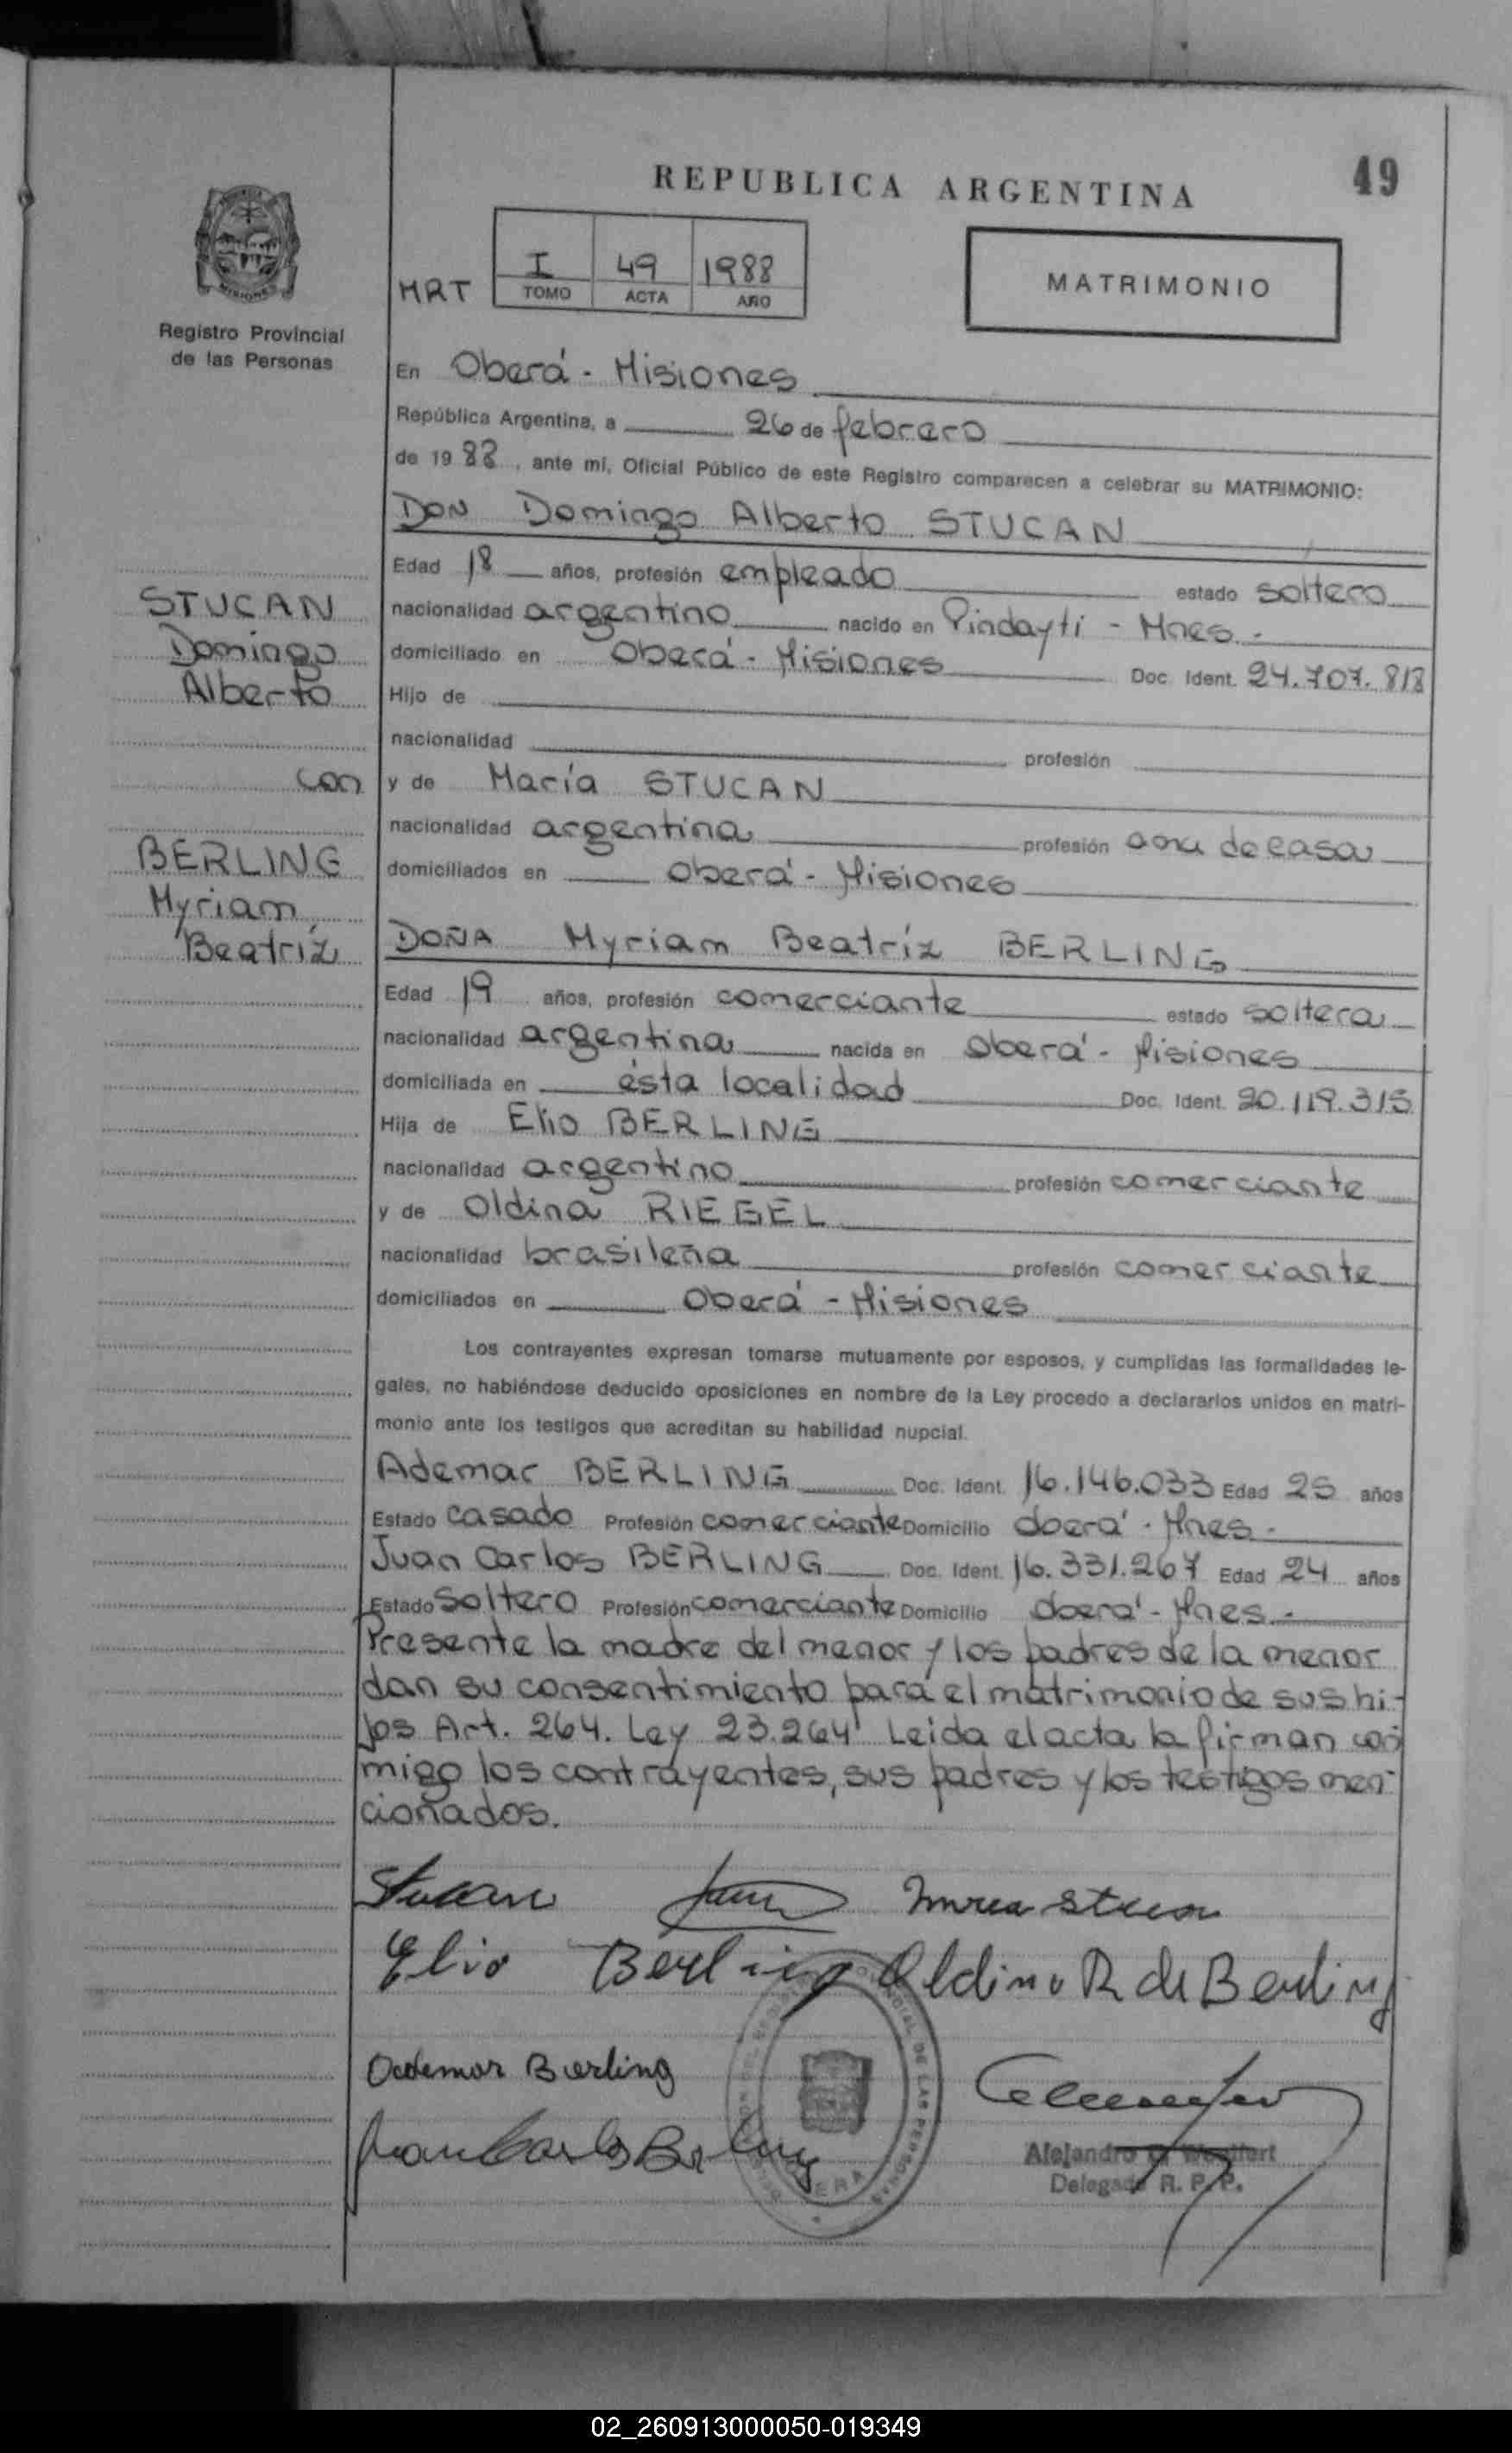 REPUBLICA ARGENTINA
49
MRT
I
49
1988
TOMO
ACTA
AÑO
MATRIMONIO
Registro Provincial
de las Personas
STUCAN
Domingo
Alberto
con
BERLING
Myriam
Beatríz
En Oberá - Misiones
República Argentina, a 26 de febrero
de 1988, ante mí, Oficial Público de este Registro comparecen a celebrar su MATRIMONIO:
DON Domingo Alberto STUCAN
Edad 18 años, profesión empleado estado soltero
nacionalidad argentino nacido en Pindayti - Mnes.
domiciliado en Oberá - Misiones Doc. Ident. 24.707.818
Hijo de
nacionalidad profesión
y de María STUCAN
nacionalidad argentina profesión ama de casa
domiciliados en Oberá - Misiones
DOÑA Myriam Beatríz BERLING
Edad 19 años, profesión comerciante estado soltera
nacionalidad argentina nacida en Oberá - Misiones
domiciliada en ésta localidad Doc. Ident. 20.119.315
Hija de Elio BERLING
nacionalidad argentino profesión comerciante
y de Oldina RIEGEL
nacionalidad brasileña profesión comerciante
domiciliados en Oberá - Misiones
Los contrayentes expresan tomarse mutuamente por esposos, y cumplidas las formalidades le-
gales, no habiéndose deducido oposiciones en nombre de la Ley procedo a declararlos unidos en matri-
monio ante los testigos que acreditan su habilidad nupcial.
Ademar BERLING Doc. Ident. 16.146.033 Edad 25 años
Estado casado Profesión comerciante Domicilio Oberá - Mnes.
Juan Carlos BERLING Doc. Ident. 16.331.267 Edad 24 años
Estado soltero Profesión comerciante Domicilio Oberá - Mnes.
Presente la madre del menor y los padres de la menor
dan su consentimiento para el matrimonio de sus hi-
jos Art. 264. Ley 23.264 Leida el acta la firman con
migo los contrayentes, sus padres y los testigos men
cionados.
Stucan
Elio Berling Oldina R de Berling
Ademar Berling
Juan Carlos Berling
Alejandro
Delegado R. P. P.
02_260913000050-019349